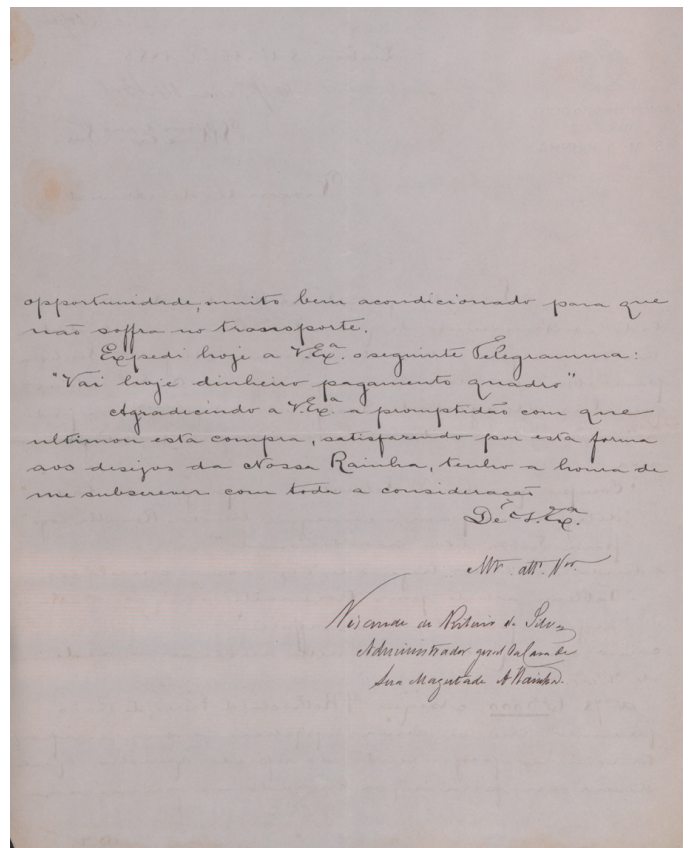 opportunidade, muito bem acondicionado para que
não soffra no transporte.
Expedi hoje a V. Exª. o seguinte Telegramma:
"Vai hoje dinheiro pagamento quadro"
Agradecindo a V. Exª. a promptidão com que
ultimou esta compra, satisfazendo por esta forma
aos desejos da Nossa Rainha, tenho a honra de
me subscrever com toda a consideração
De V. Exª.
Mto. attº. Vor.
Visconde de da Silva
Administrador geral da Casa de
Sua Magestade A Rainha.